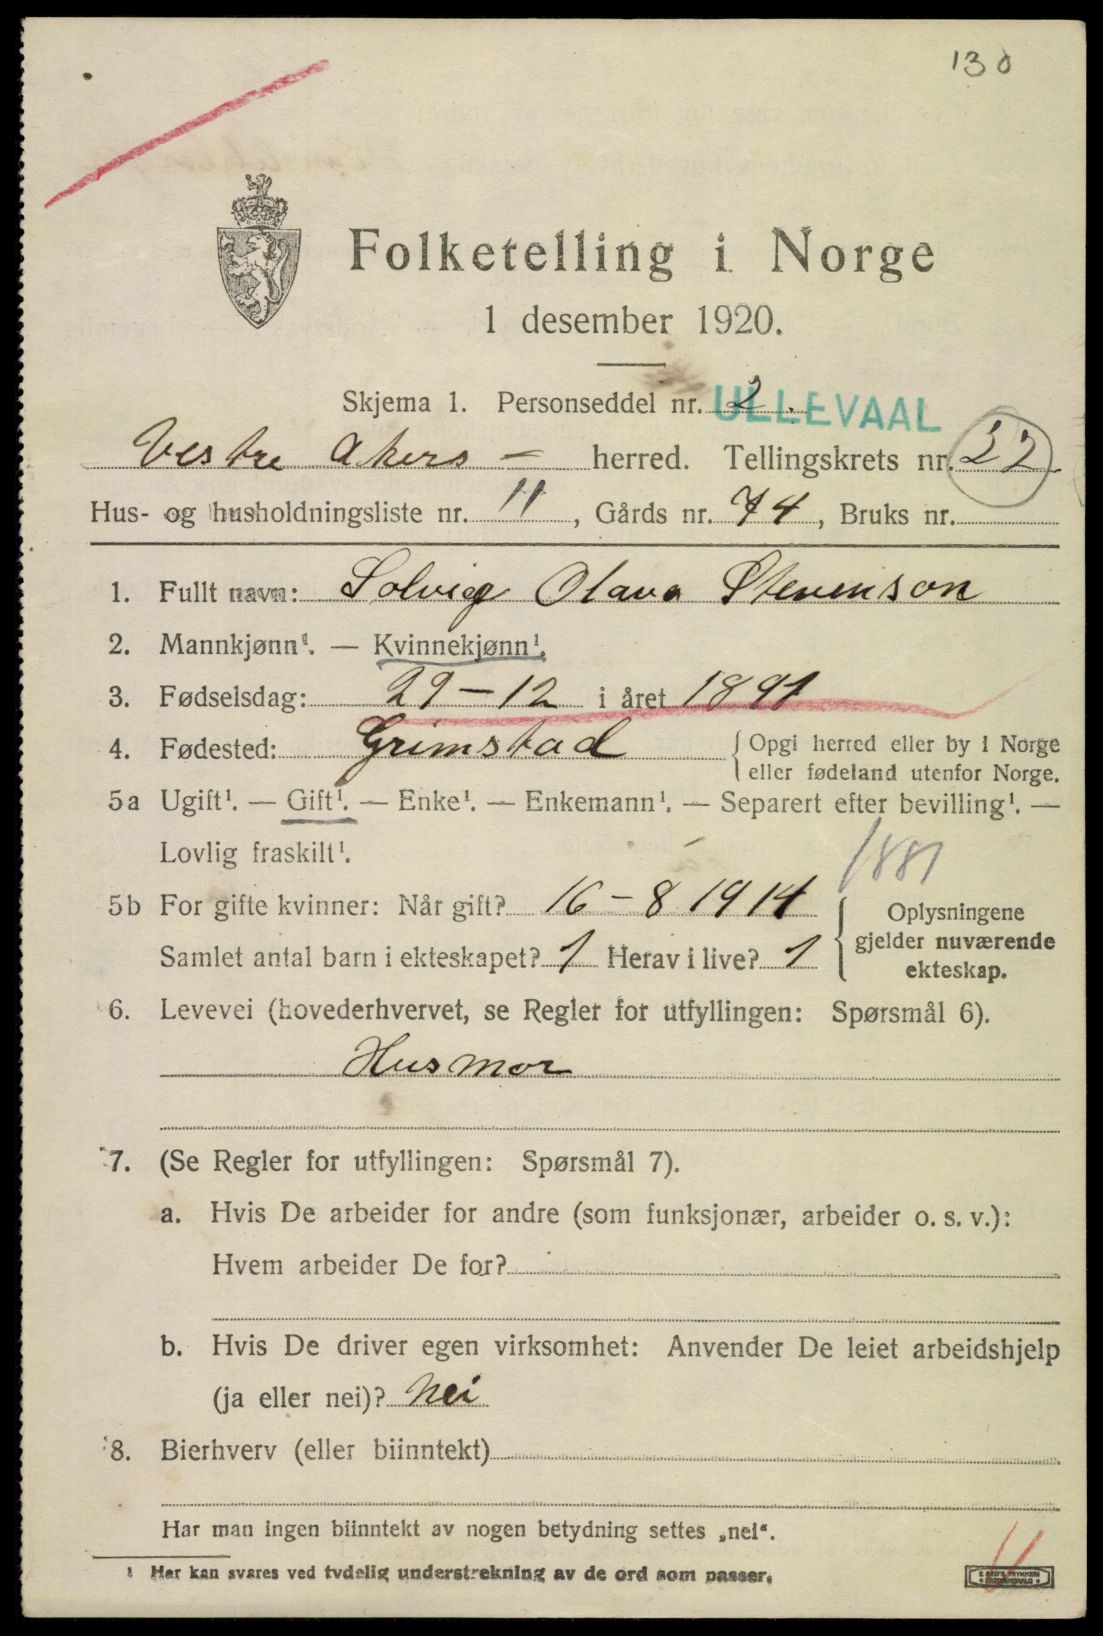 130
Folketelling i Norge
1 desember 1920.
Skjema 1. Personseddel nr. 2.
ULLEVAAL
Vestre Akers – herred. Tellingskrets nr. 32
Hus- og husholdningsliste nr. 11, Gårds nr. 74, Bruks nr.
1. Fullt navn: Solvig Olava Stevenson
2. Mannkjønn¹. — Kvinnekjønn¹.
3. Fødselsdag: 29 – 12 i året 1891
4. Fødested: Grimstad
{ Opgi herred eller by i Norge
eller fødeland utenfor Norge.
5a Ugift¹. — Gift¹. — Enke¹. — Enkemann¹. — Separert efter bevilling¹. —
Lovlig fraskilt¹.
1881
5b For gifte kvinner: Når gift? 16 – 8 1914
Samlet antal barn i ekteskapet? 1 Herav i live? 1
{ Oplysningene
gjelder nuværende
ekteskap.
6. Levevei (hovederhvervet, se Regler for utfyllingen: Spørsmål 6).
Husmor
7. (Se Regler for utfyllingen: Spørsmål 7).
a. Hvis De arbeider for andre (som funksjonær, arbeider o. s. v.):
Hvem arbeider De for?
b. Hvis De driver egen virksomhet: Anvender De leiet arbeidshjelp
(ja eller nei)? Nei
8. Bierhverv (eller biinntekt)
Har man ingen biinntekt av nogen betydning settes „nei“.
¹ Her kan svares ved tydelig understrekning av de ord som passer.